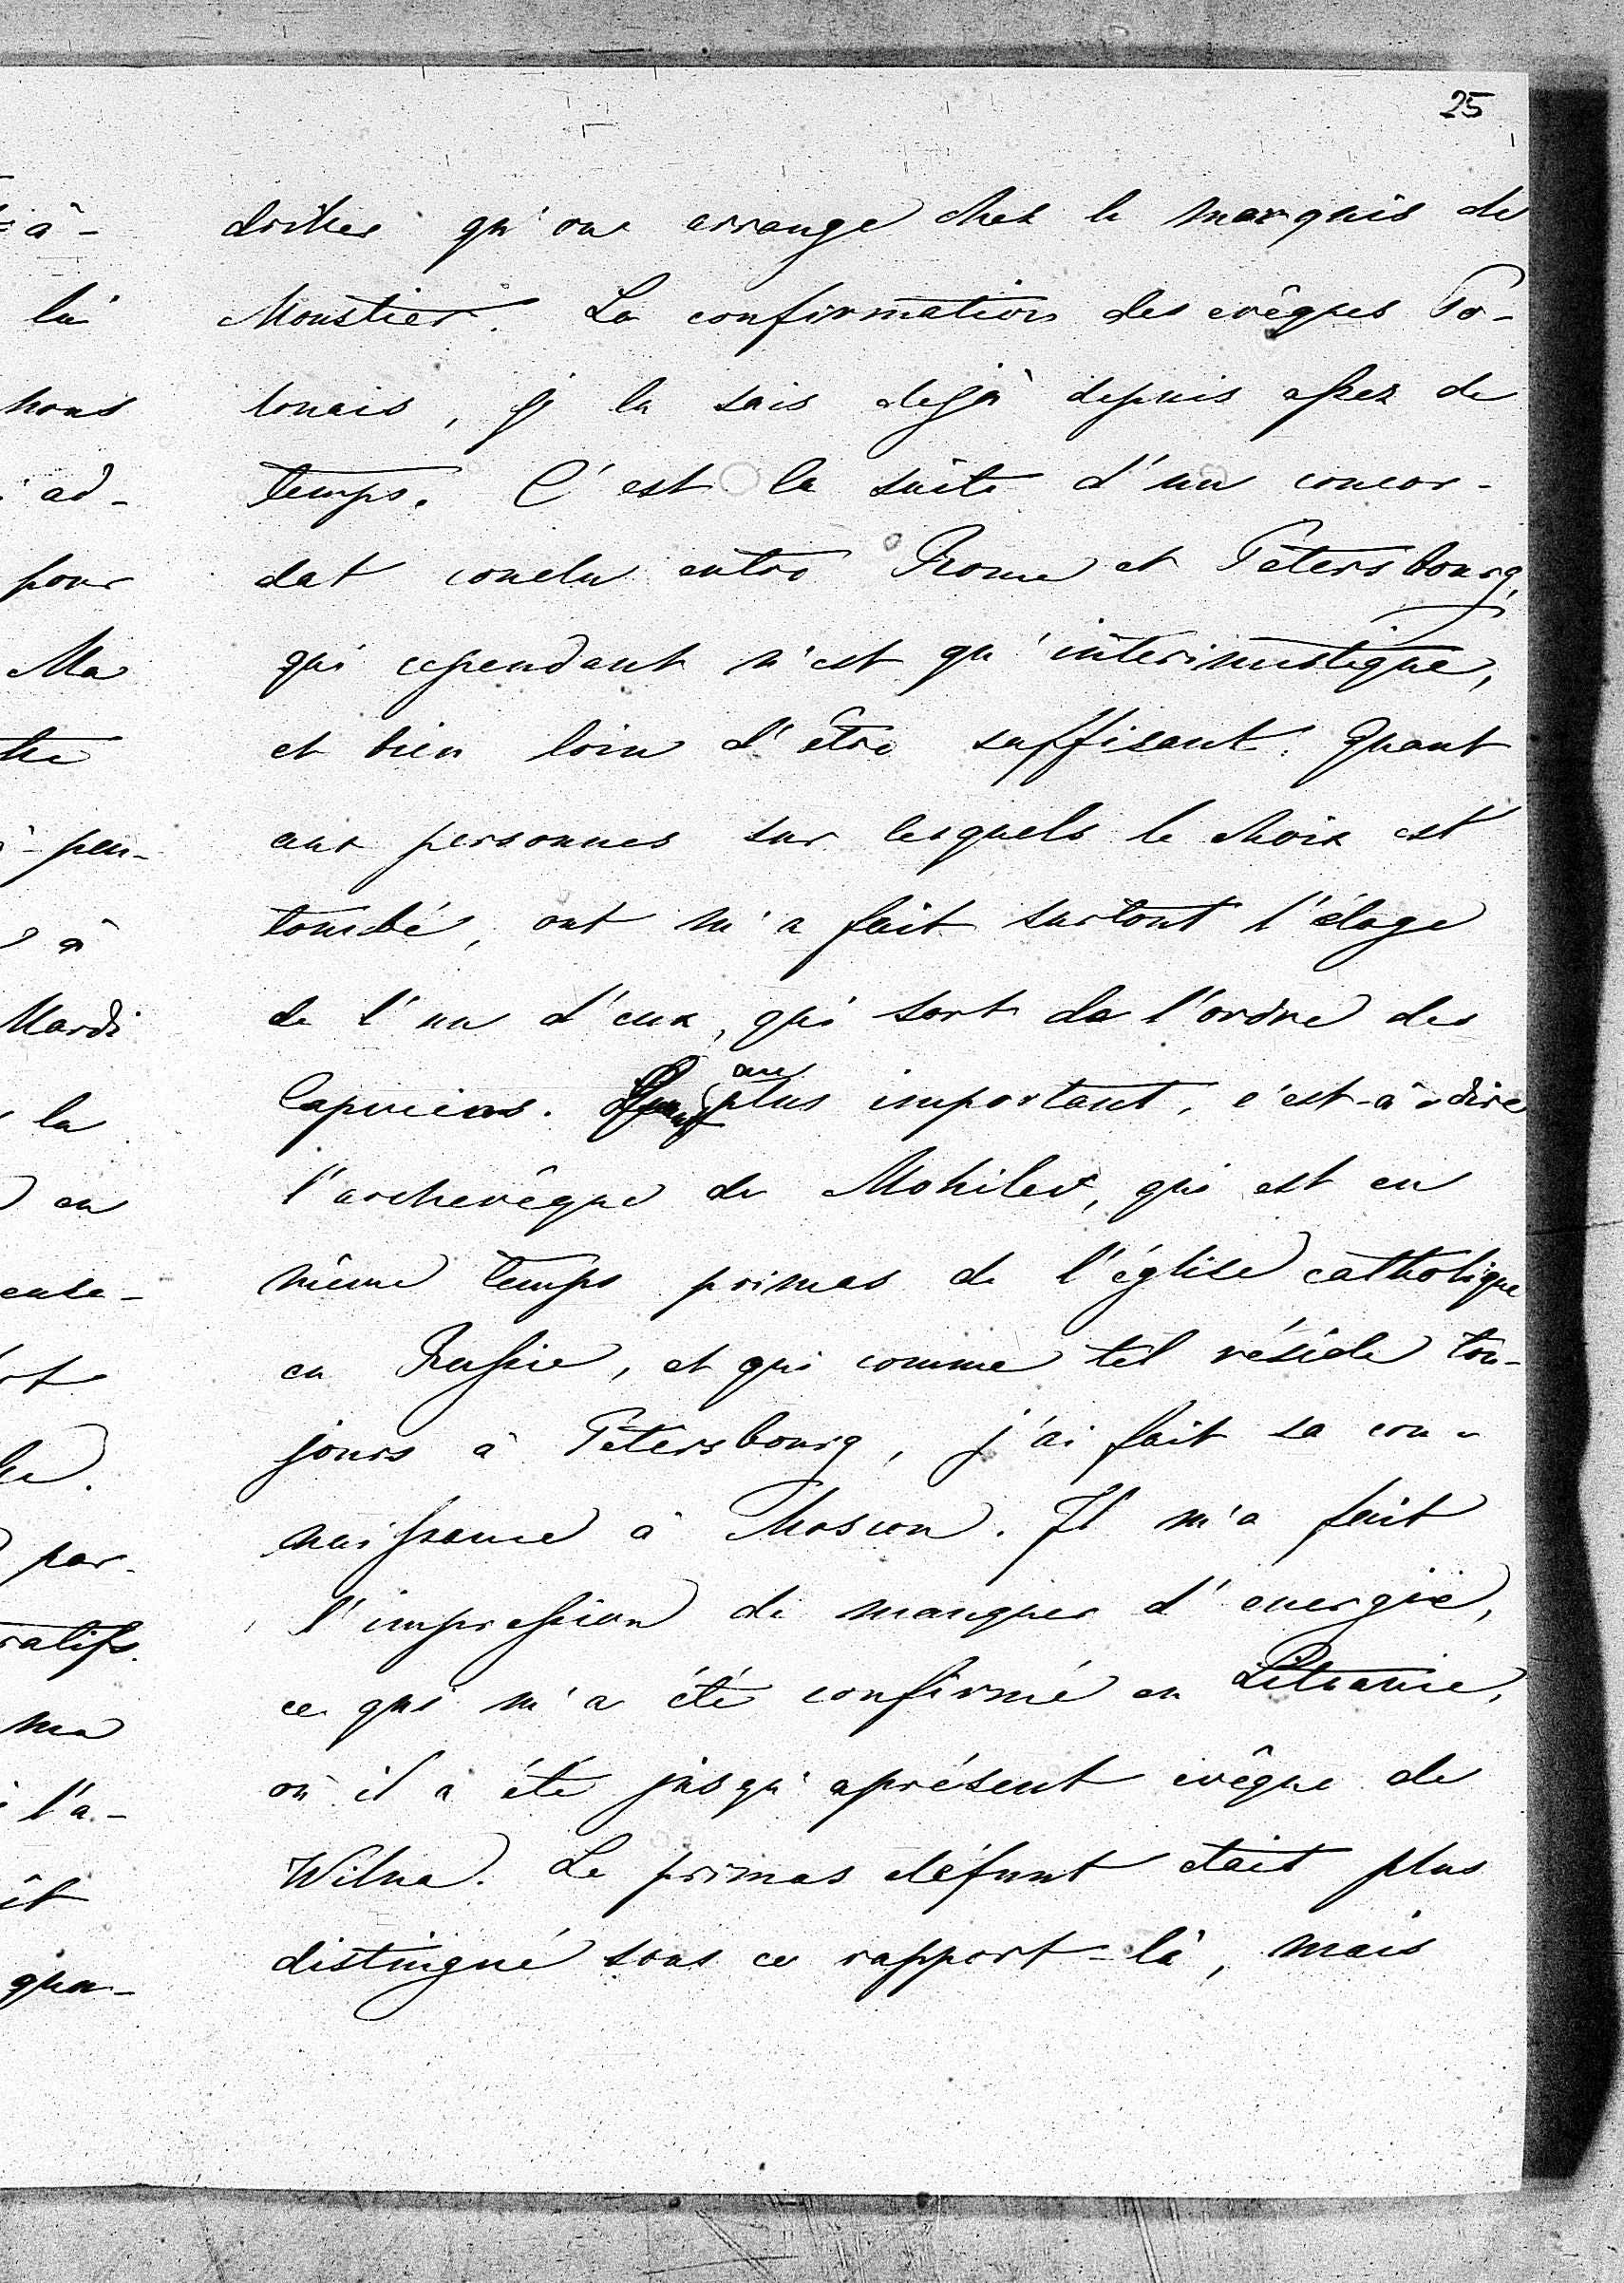 25
qu'on arrange chez le marquis de
Moustier. La confirmation des evêques Po-
lonais, je la sais dejà depuis assez de
temps. C'est la suite d'un concor-
dat conclu entre Rome et Petersbourg,
qui cependant n'est qu'interimistique,
et bien loin d'être suffisant. Quant
aux personnes sur lesquels le choix est
tombé, ont m'a fait surtout l'éloge
de l'un d'eux, qui sort de l'ordre des
Capucins. au plus important, c'est-à-dire
l'archevêque de Mohilev, qui est en
même temps primas de l'église catholique
en Russie, et qui comme tel réside tou-
jours à Petersbourg, j'ai fait sa con-
naissance à Moscou. Il m'a fait
l'impression de manquer d'energie,
ce qui m'a été confirmé en Lituanie,
où il a été jusqu'aprésent evêque de
Wilna. Le primas défunt etait plus
distingué sous ce rapport-là, mais
à-
là
nous
ad-
pour
Ma
peu-
à
Mardi
la
en
par-
ma
l'a-